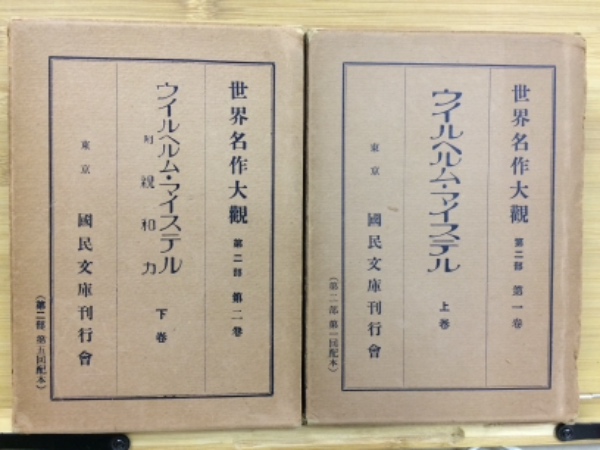 世界名作大觀 第二部 第一卷
ウイルヘルム・マイステル 上卷
東京 國民文庫刊行會
(第二部 第一回配本)
世界名作大觀 第二部 第二卷
ウイルヘルム・マイステル 下卷
附 親和力
東京 國民文庫刊行會
(第二部 第五回配本)